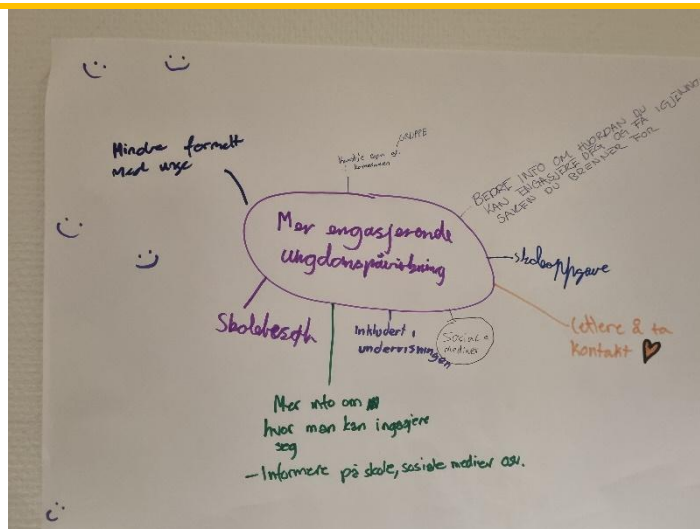 Mindre formelt
med unge
GRUPPE
kommunen
BEDRE INFO OM HVORDAN DU
KAN ENGASJERE DEG OG FÅ IGJENNOM
SAKEN DU BRENNER FOR
Mer engasjerende
ungdomspåvirkning
skoleoppgave
Lettere å ta
kontakt
Skolebesøk
Inkludert i
undervisningen
Sosiale
medier
Mer info om
hvor man kan ingasjere
seg
- Informere på skole, sosiale medier osv.